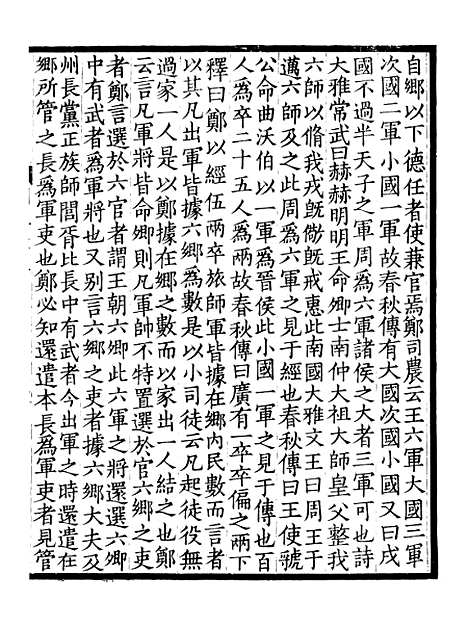 自鄉以下德任者使蒹官焉鄭司農云王六軍大國三軍
次國二軍小國一軍故春秋傳有大國次國小國又曰成
國不過半天子之軍周爲六軍諸侯之大者三軍可也詩
大雅常武曰赫赫明明王命卿士南仲大祖大師皇父整我
六師以脩我戎旣儆旣戒惠此南國大雅文王曰周王于
邁六師及之此周爲六軍之見于經也春秋傳曰王使虢
公命曲沃伯以一軍爲晉侯此小國一軍之見于傳也百
人爲卒二十五人爲兩故春秋傳曰廣有一卒卒偏之兩下
釋曰鄭以經伍兩卒旅師軍皆據在鄉内民數而言者
以其凡出軍皆據六鄉爲數是以小司徒云凡起徒役無
過家一人是以鄭據在鄉之數而以家出一人結之也鄭
云言凡軍將皆命卿則凡軍帥不特置選於官六鄉之吏
者鄭言選於六官者謂王朝六卿此六軍之將還選六卿
中有武者爲軍將也又别言六鄉之吏者據六鄉大夫及
州長黨正族師閭胥比長中有武者今出軍之時還遣在
鄉所管之長爲軍吏也鄭必知還遣本長爲軍吏者見管